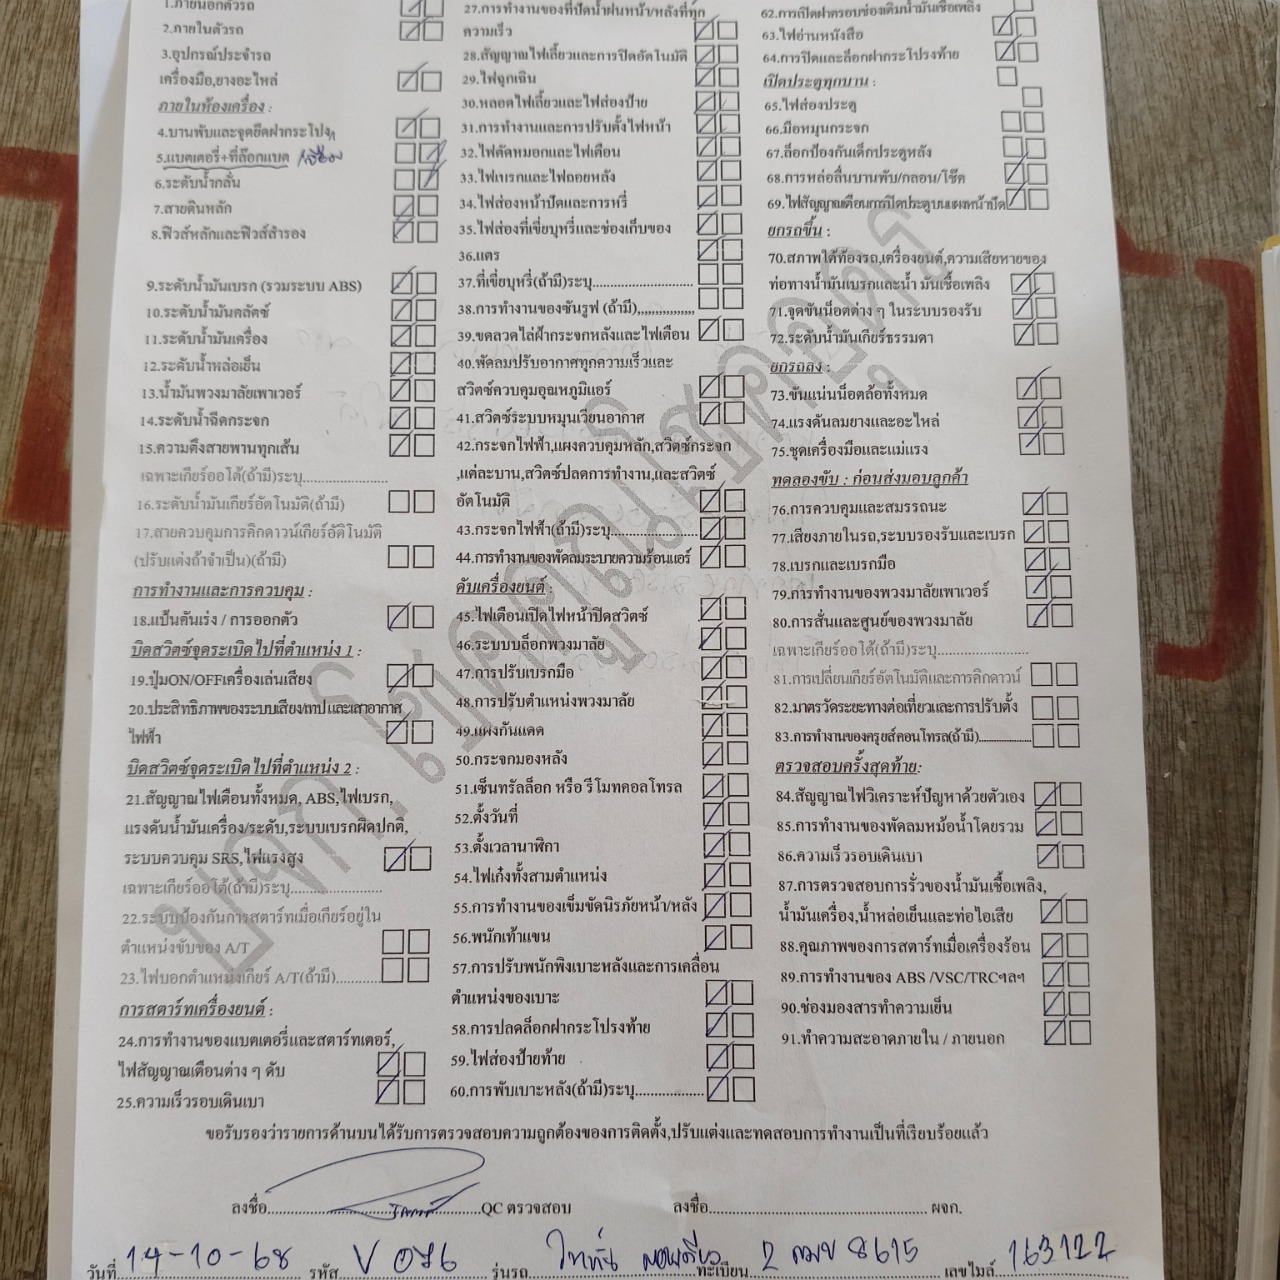 1.ภายนอกตัวรถ
2.ภายในตัวรถ
3.อุปกรณ์ประจำรถ
เครื่องมือ,ยางอะไหล่
ภายในห้องเครื่อง :
4.บานพับและจุดยึดฝากระโปรง
5.แบตเตอรี่+ที่ล๊อกแบต
6.ระดับน้ำกลั่น
7.สายดินหลัก
8.ฟิวส์หลักและฟิวส์สำรอง
9.ระดับน้ำมันเบรก (รวมระบบ ABS)
10.ระดับน้ำมันคลัตซ์
11.ระดับน้ำมันเครื่อง
12.ระดับน้ำหล่อเย็น
13.น้ำมันพวงมาลัยเพาเวอร์
14.ระดับน้ำฉีดกระจก
15.ความตึงสายพานทุกเส้น
เฉพาะเกียร์ออโต้(ถ้ามี)ระบุ....................
16.ระดับน้ำมันเกียร์อัตโนมัติ(ถ้ามี)
17.สายควบคุมการคิกดาวน์เกียร์อัติโนมัติ
(ปรับแต่งถ้าจำเป็น)(ถ้ามี)
การทำงานและการควบคุม :
18.แป้นคันเร่ง / การออกตัว
บิดสวิตช์จุดระเบิดไปที่ตำแหน่ง 1 :
19.ปุ่มON/OFFเครื่องเล่นเสียง
20.ประสิทธิภาพของระบบเสียง/เทป และเสาอากาศ
ไฟฟ้า
บิดสวิตซ์จุดระเบิดไปที่ตำแหน่ง 2 :
21.สัญญาณไฟเตือนทั้งหมด, ABS,ไฟเบรก,
แรงดันน้ำมันเครื่อง/ระดับ,ระบบเบรกผิดปกติ,
ระบบควบคุม SRS,ไฟแรงสูง
เฉพาะเกียร์ออโต้(ถ้ามี)ระบุ....................
22.ระบบป้องกันการสตาร์ทเมื่อเกียร์อยู่ใน
ตำแหน่งขับของ A/T
23.ไฟบอกตำแหน่งเกียร์ A/T(ถ้ามี)...........
การสตาร์ทเครื่องยนต์ :
24.การทำงานของแบตเตอรี่และสตาร์ทเตอร์,
ไฟสัญญาณเตือนต่าง ๆ ดับ
25.ความเร็วรอบเดินเบา
27.การทำงานของที่ปัดน้ำฝนหน้า/หลังที่ทุก
ความเร็ว
28.สัญญาณไฟเลี้ยวและการปิดอัตโนมัติ
29.ไฟฉุกเฉิน
30.หลอดไฟเลี้ยวและไฟส่องป้าย
31.การทำงานและการปรับตั้งไฟหน้า
32.ไฟตัดหมอกและไฟเตือน
33.ไฟเบรกและไฟถอยหลัง
34.ไฟส่องหน้าปัดและการหรี่
35.ไฟส่องที่เขี่ยบุหรี่และช่องเก็บของ
36.แตร
37.ที่เขี่ยบุหรี่(ถ้ามี)ระบุ..............................
38.การทำงานของซันรูฟ (ถ้ามี),,,,,,,,,,,,,,,
39.ขดลวดไล่ฝ้ากระจกหลังและไฟเตือน
40.พัดลมปรับอากาศทุกความเร็วและ
สวิตซ์ควบคุมอุณหภูมิแอร์
41.สวิตซ์ระบบหมุนเวียนอากาศ
42.กระจกไฟฟ้า,แผงควบคุมหลัก,สวิตซ์กระจก
,แต่ละบาน,สวิตซ์ปลดการทำงาน,และสวิตซ์
อัตโนมัติ
43.กระจกไฟฟ้า(ถ้ามี)ระบุ.....................
44.การทำงานของพัดลมระบายความร้อนแอร์
ดับเครื่องยนต์ :
45.ไฟเตือนเปิดไฟหน้าปิดสวิตซ์
46.ระบบบล็อกพวงมาลัย
47.การปรับเบรกมือ
48.การปรับตำแหน่งพวงมาลัย
49.แผ่งกันแดด
50.กระจกมองหลัง
51.เซ็นทรัลล็อก หรือ รีโมทคอลโทรล
52.ตั้งวันที่
53.ตั้งเวลานาฬิกา
54.ไฟเก๋งทั้งสามตำแหน่ง
55.การทำงานของเข็มขัดนิรภัยหน้า/หลัง
56.พนักเท้าแขน
57.การปรับพนักพิงเบาะหลังและการเคลื่อน
ตำแหน่งของเบาะ
58.การปลดล็อกฝากระโปรงท้าย
59.ไฟส่องป้ายท้าย
60.การพับเบาะหลัง(ถ้ามี)ระบุ..................
62.การเปิดฝาครอบช่องเติมน้ำมันเชื้อเพลิง
63.ไฟอ่านหนังสือ
64.การปิดและล็อกฝากระโปรงท้าย
เปิดประตูทุกบาน :
65.ไฟส่องประตู
66.มือหมุนกระจก
67.ล็อกป้องกันเด็กประตูหลัง
68.การหล่อลื่นบานพับ/กลอน/โช๊ต
69.ไฟสัญญาณเตือนการปิดประตูบนแผงหน้าปัด
ยกรถขึ้น :
70.สภาพใต้ท้องรถ,เครื่องยนต์,ความเสียหายของ
ท่อทางน้ำมันเบรกและน้ำ มันเชื้อเพลิง
71.จุดขันน็อตต่าง ๆ ในระบบรองรับ
72.ระดับน้ำมันเกียร์ธรรมดา
ยกรถลง :
73.ขันแน่นน็อตล้อทั้งหมด
74.แรงดันลมยางและอะไหล่
75.ชุดเครื่องมือและแม่แรง
ทดลองขับ : ก่อนส่งมอบลูกค้า
76.การควบคุมและสมรรถนะ
77.เสียงภายในรถ,ระบบรองรับและเบรก
78.เบรกและเบรกมือ
79.การทำงานของพวงมาลัยเพาเวอร์
80.การสั่นและศูนย์ของพวงมาลัย
เฉพาะเกียร์ออโต้(ถ้ามี)ระบุ......................
81.การเปลี่ยนเกียร์อัตโนมัติและการคิกดาวน์
82.มาตรวัดระยะทางต่อเที่ยวและการปรับตั้ง
83.การทำงานของครุยส์คอนโทรล(ถ้ามี)...............
ตรวจสอบครั้งสุดท้าย:
84.สัญญาณไฟวิเคราะห์ปัญหาด้วยตัวเอง
85.การทำงานของพัดลมหม้อน้ำโดยรวม
86.ความเร็วรอบเดินเบา
87.การตรวจสอบการรั่วของน้ำมันเชื้อเพลิง,
น้ำมันเครื่อง,น้ำหล่อเย็นและท่อไอเสีย
88.คุณภาพของการสตาร์ทเมื่อเครื่องร้อน
89.การทำงานของ ABS /VSC/TRCฯลฯ
90.ช่องมองสารทำความเย็น
91.ทำความสะอาดภายใน / ภายนอก
ขอรับรองว่ารายการด้านบนได้รับการตรวจสอบความถูกต้องของการติดตั้ง,ปรับแต่งและทดสอบการทำงานเป็นที่เรียบร้อยแล้ว
ลงชื่อ..................QC ตรวจสอบ ลงชื่อ.................. ผจก.
วันที่ 14-10-68 รหัส V 076 รุ่นรถ ไททั่น ตอนเดียว ทะเบียน 2 ฒฆ 8615 เลขไมล์ 163122